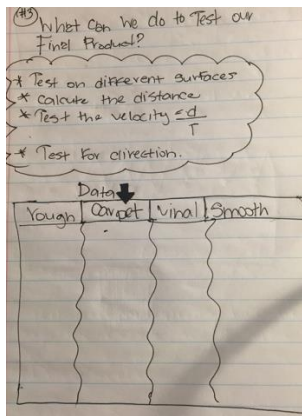 #3 What can we do to Test our
Final Product?
* Test on different surfaces
* calcute the distance
* Test the velocity = d
T
* Test For direction.
Data
rough Carpet Vinal Smooth